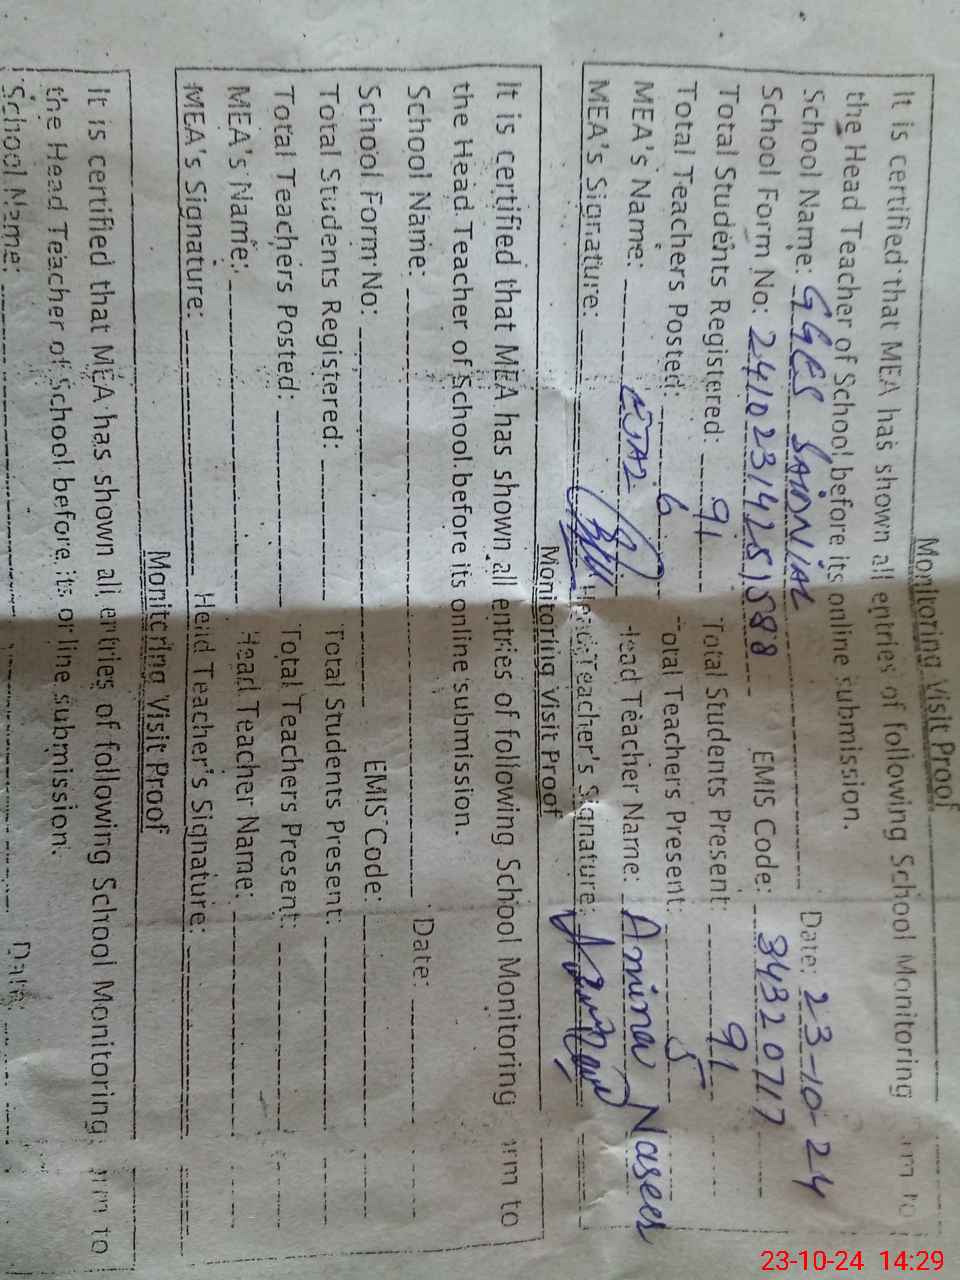 Monitoring Visit Proof
It is certified that MEA has shown all entries of following School Monitoring to
the Head Teacher of School before its online submission.
School Name: GGES Date: 23-10-24
School Form No: 24102314251588 EMIS Code: 34320717
Total Students Registered: 91 Total Students Present: 91
Total Teachers Posted: 6 Total Teachers Present: 5
MEA's Name: Head Teacher Name: Amina Naseer
MEA's Signature: Head Teacher's Signature:
Monitoring Visit Proof
It is certified that MEA has shown all entries of following School Monitoring to
the Head Teacher of School before its online submission.
School Name: Date:
School Form No: EMIS Code:
Total Students Registered: Total Students Present:
Total Teachers Posted: Total Teachers Present:
MEA's Name: Head Teacher Name:
MEA's Signature: Head Teacher's Signature:
Monitoring Visit Proof
It is certified that MEA has shown all entries of following School Monitoring to
the Head Teacher of School before its online submission.
School Name: Date:
23-10-24 14:29